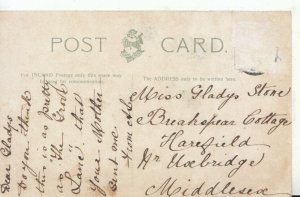 POST CARD.
For INLAND Postage only this space may be used for communication.
The ADDRESS only to be written here.
Dear Gladys
Do you think
this is as pretty
as "The Crook
Lane", that
your Mother
sent me.
from A.S.
Miss Gladys Stone
Breakspear Cottage
Harefield
Nr Uxbridge
Middlesex